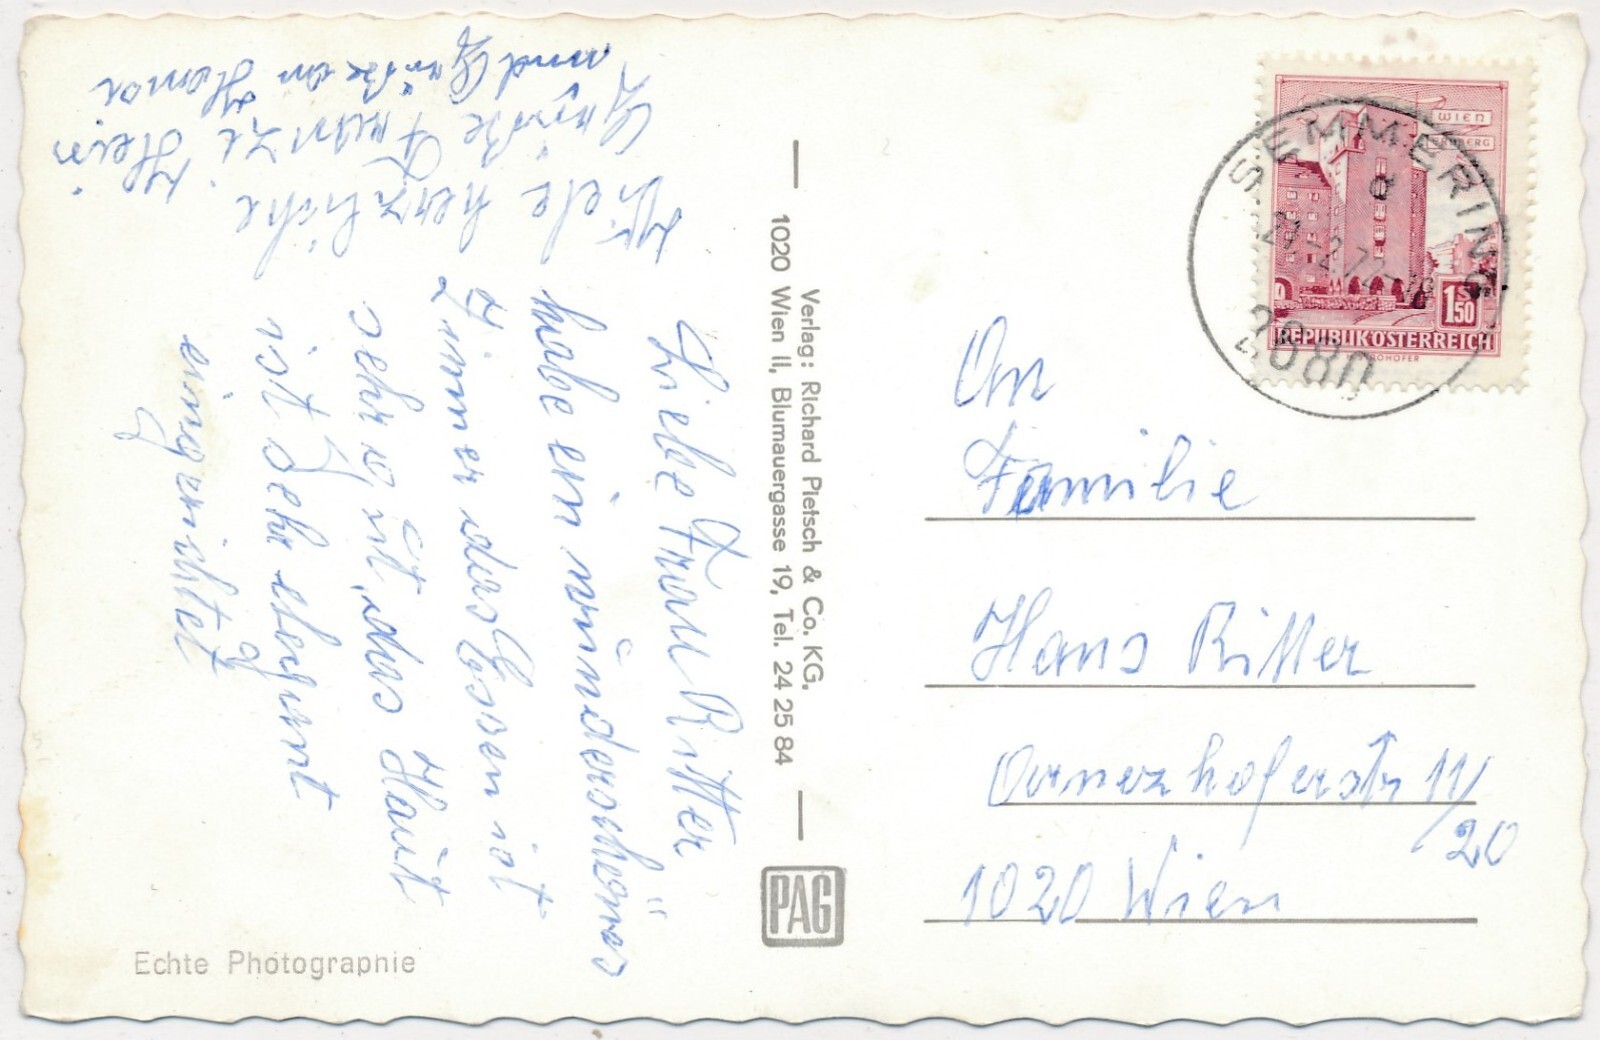 Liebe Frau Ritter
habe ein wunderschönes
Zimmer das Essen ist
sehr gut, das Haus
ist sehr elegant
eingerichtet
Viele herzliche
Grüße Franzi Hein
und Grüße an Hansi
Verlag: Richard Pietsch & Co. KG.
1020 Wien II, Blumauergasse 19, Tel. 24 25 84
PAG
Echte Photographie
WIEN
1 S 50
REPUBLIK ÖSTERREICH
SEMMERING
2680
An
Familie
Hans Ritter
11/
20
1020 Wien